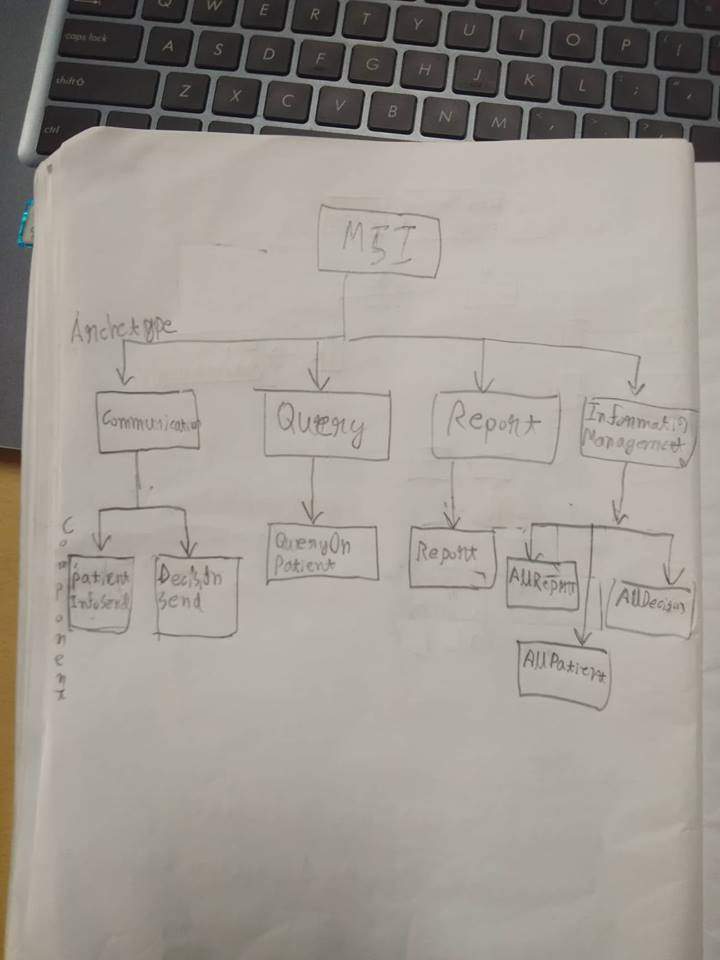 Q W E R T Y U I O P [
caps lock A S D F G H J K L ; "
shift Z X C V B N M < >
ctrl
M5I
Archetype
Communication
Query
Report
Information
Management
Component
patient
InfoSend
Decision
Send
QueryOn
Patient
Report
AllReport
AllDecision
AllPatient